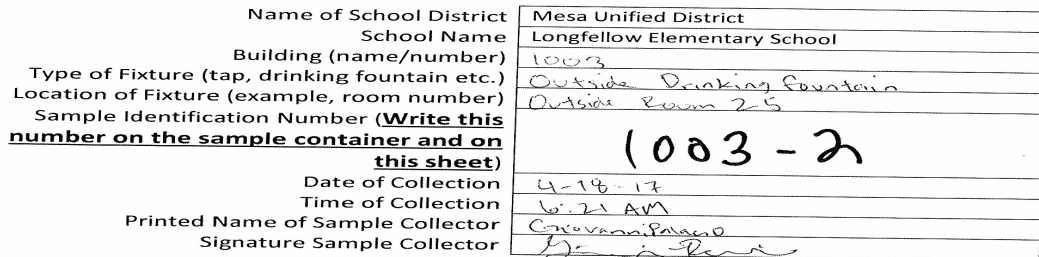 Name of School District Mesa Unified District
School Name Longfellow Elementary School
Building (name/number) 1003
Type of Fixture (tap, drinking fountain etc.) Outside Drinking Fountain
Location of Fixture (example, room number) Outside Room 25
Sample Identification Number (Write this
number on the sample container and on
this sheet) 1003-2
Date of Collection 4-18-17
Time of Collection 6:21 AM
Printed Name of Sample Collector Giovanni Palacio
Signature Sample Collector